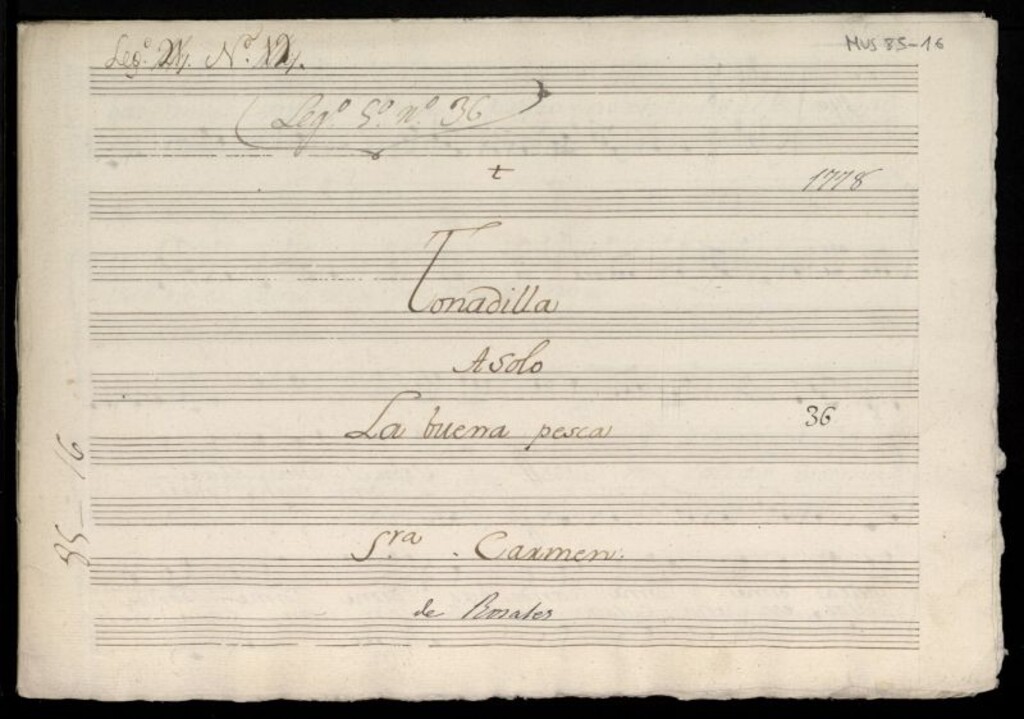 Leg.º Nº
MUS 85-16
(Legº 5º nº 36)
t
1778
Tonadilla
A Solo
La buena pesca
36
Sra. Carmen.
de Rosales
85-16